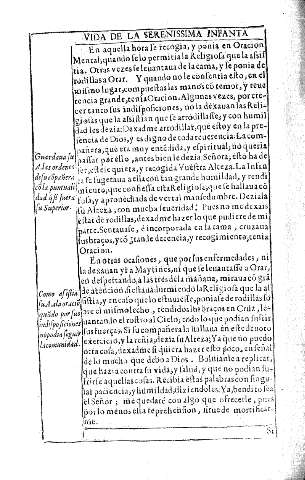 VIDA DE LA SERENISSIMA INFANTA
En aquella hora se recogia, y ponia en Oracion
Mental, quando se lo permitia la Religiosa que la assis
tia. Otras vezes se leuantaua de la cama, y se ponia de
rodillas a Orar. Y quando no le consentia esto, en el
mismo lugar, compuestas las manos cõ temor, y reue
rencia grande, tenia Oracion. Algunas vezes, por cre
cer tanto sus indisposiciones, no la dexauan las Reli-
giosas que la assistian que se arrodillasse, y con humil
dad les dezia: Dexadme arrodillar, que estoy en la pre
sencia de Dios, y es digno de toda reuerencia. La com
pañera, que era muy entendida, y espiritual, no queria
passar por ello, antes bien le dezia Señora, esto ha de
ser, estese quieta, y recogida Vuestra Alteza. La Infan
ta se sugetaua a esto con tan grande humildad, y rendi
miento, que confiessa esta Religiosa, que se hallaua cõ
fusa, y aprouechada de ver tal mansedumbre. Deziale
su Alteza, con mucha sueridad: Pues no me dexais
estar de rodillas, dexadme hazer lo que pudiere de mi
parte. Sentauase, è incorporada en la cama, cruzaua
sus braços, y cõ grande decencia, y recogimiento, tenia
Oracion.
En otras ocasiones, que por sus enfermedades, ni
la dexauan yr a Maytines, ni que se leuantasse a Orar,
en despertando a las tres de la mañana, miraua cõ grã
de atencion si estaua durmiendo la Religiosa que la as
sistia, y en caso que lo estuuiesse, poniase de rodillas so
bre el mismo lecho, tendidos los braços en Cruz, le-
uantando el rostro al Cielo, todo lo que podian sufrir
sus fuerças. Si su compañera la hallaua en este deuoto
exercicio, y la reñia, dezia su Alteza; Ya que no puedo
otra cosa, dexadme si quiera hazer esto poco, en señal
de lo mucho que debo a Dios. Boluiante a replicar,
que hazia contra su vida, y salud, y que no podian su-
frirse aquellas cosas. Recibia estas palabras con singu-
lar paciencia, y humildad, diziendoles, Ya, bendito sea
el Señor; me quedarè con algo que ofrecerle, pues
por lo menos esta reprehension, sirue de mortificar
me.
Si
Guardaua su
A. los ordenes
de su cõpañera
cõ la puntuali
dad q̃ si fuera
su Superior.
Como assistia
su A. a la oraciõ
quãdo por sus
indisposiciones
no podia seguir
la comunidad.